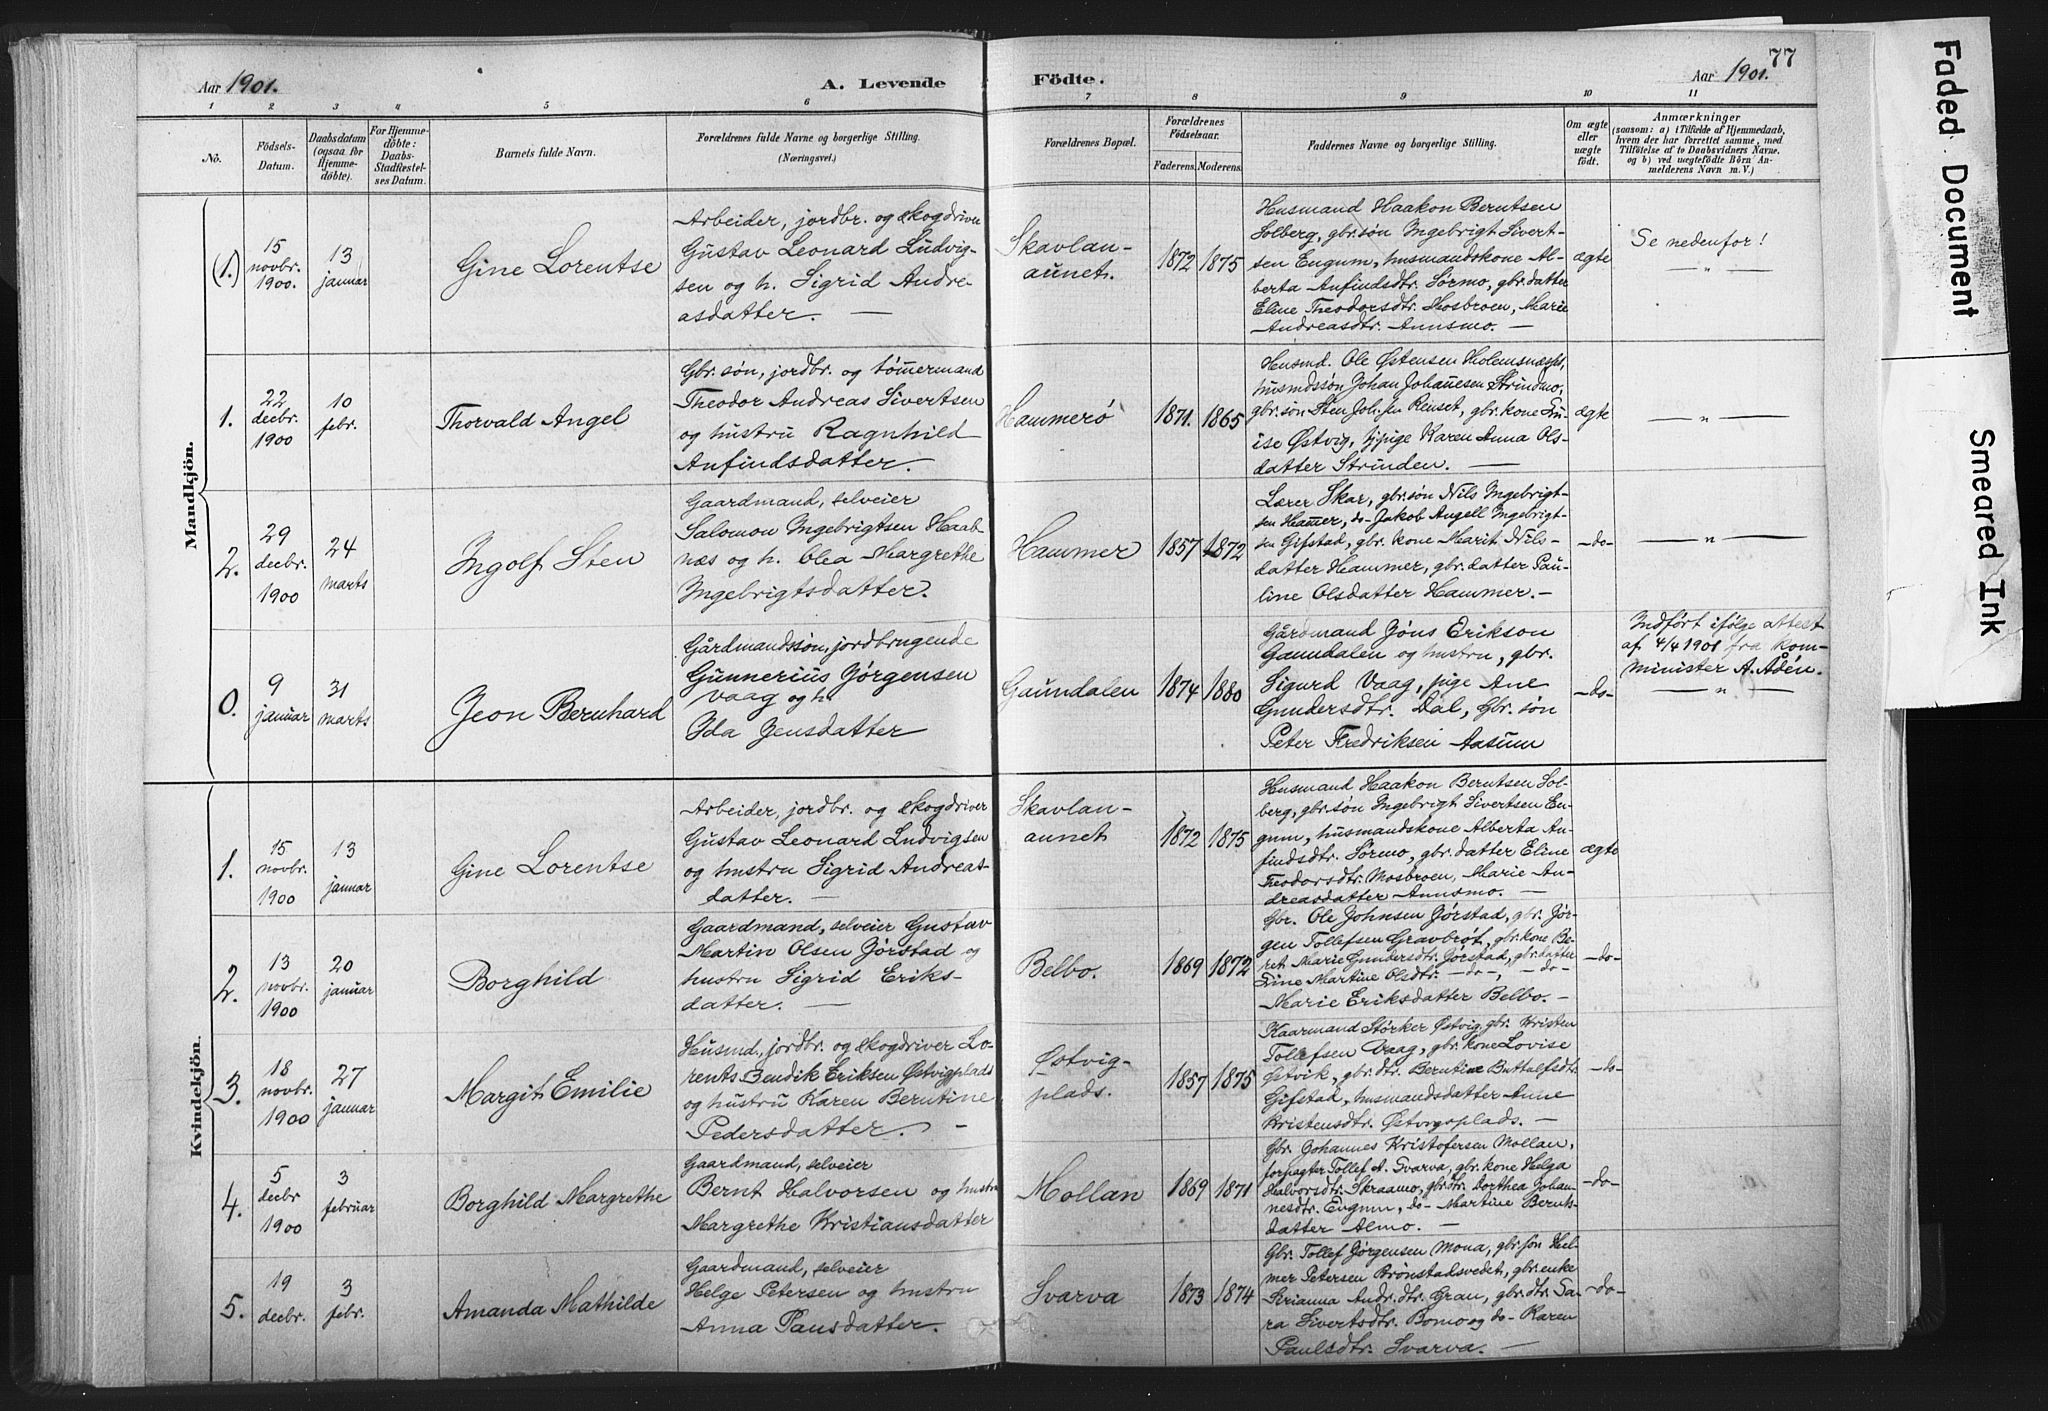 Aar 1901.
A. Levende Födte.
Aar 1901.
77
1 2 3 4 5 6 7 8 9 10 11
No.
Födsels-
Datum.
Daabsdatum
(ogsaa for
Hjemme-
döbte).
For Hjemme-
döbte:
Daabs-
Stadfæstel-
ses Datum.
Barnets fulde Navn.
Forældrenes fulde Navne og borgerlige Stilling.
(Næringsvei.)
Forældrenes Bopæl.
Forældrenes
Födselsaar.
Faderens.
Moderens.
Faddernes Navne og borgerlige Stilling.
Om ægte
eller
uægte
födt.
Anmærkninger
(saasom: a) i Tilfælde af Hjemmedaab,
hvem der har forrettet samme, med
Tilföielse af to Daabsvidners Navne,
og b) ved uægtefödte Börn An-
melderens Navn m. V.)
Mandkjön.
(1.)
15
novbr.
1900.
13
januar
Gine Lorentse
Arbeider, jordbr. og skogdriver
Gustav Leonard Ludvig-
sen og h. Sigrid Andre-
asdatter. —
Skavlan-
aunet.
1872
1875
Husmand Haakon Berntsen
Solberg, gbr.søn Ingebrigt Sivert-
sen Engum, husmandskone Al-
berta Anfindsdtr. Sørmo, gbr.datter
Eline Theodorsdtr. Mosbroen, Marie
Andreasdtr. Annsmo. —
ægte
Se nedenfor!
— " —
1.
22
decbr.
1900
10
febr.
Thorvald Angel
Gbr. søn, jordbr. og tømmermand
Theodor Andreas Sivertsen
og hustru Ragnhild
Anfindsdatter. —
Hammerø
1871.
1865
Husmd. Ole Østensen Holemsnæsset,
husmdssøn Johan Johannesen Strindmo,
gbr. søn Sten Joh.sen Renset, gbr. kone Lu-
ise Østvig, tj.pige Karen Anna Ols-
datter Strinden. —
ægte
— " —
2.
29
decbr.
1900
24
marts
Ingolf Sten
Gaardmand, selveier
Salomon Ingebrigtsen Haab-
næs og h. Olea Margrethe
Ingebrigtsdatter.
Hammer
1857
1872
Lærer Skar, gbr.søn Nils Ingebrigt-
sen Hammer, do- Jakob Angell Ingebrigt-
sen Gifstad, gbr. kone Marit Nils-
datter Hammer, gbr. datter Pau-
line Olsdatter Hammer. —
-do-
— " —
0.
9
januar
31
marts
Jeon Bernhard
Gårdmandssøn, jordbrugende
Gunnerius Jørgensen
Vaag og h.
Ida Jensdatter
Gaundalen
1874
1880
Gårdmand Jöns Erikson
Gaundalen og hustru, gbr.
Sigurd Vaag, pige Ane
Gundersdtr. Dal, Gbr. søn
Peter Fredriksen Aasum
-do-
Indført ifølge Attest
af 4/4 1901 fra kom-
minister A. Ådén.
— " —
Kvindekjön.
1.
15
novbr.
1900
13
januar
Gine Lorentse
Arbeider, jordbr. og skogdriver
Gustav Leonard Ludvigsen
og hustru Sigrid Andreas-
datter. —
Skavlan-
aunet
1872
1875
Husmand Haakon Berntsen Sol-
berg, gbr. søn Ingebrigt Sivertsen En-
gum, husmandskone Alberta An-
findsdtr. Sørmo, gbr. datter Eline
Theodorsdtr. Mosbroen, Marie An-
dreasdatter Annsmo. —
ægte
2.
13
novbr.
1900
20
januar
Borghild
Gaardmand, selveier Gustav
Martin Olsen Jørstad og
hustru Sigrid Eriks-
datter. —
Belbo.
1869
1872
Gbr. Ole Johnsen Jørstad, gbr. Jør-
gen Tollefsen Gravbrøt, gbr. kone Be-
ret Marie Gundersdtr. Jørstad, gbr. datter
Sine Martine Olsdtr. -do-, -do-
Marie Eriksdatter Belbo. —
-do-
3.
18
novbr.
1900
27
januar
Margit Emilie
Husmd., jordbr. og skogdriver Lo-
rents Bendik Eriksen Østvigplads
og hustru Karen Berntine
Pedersdatter. —
Østvig-
plads.
1857
1875
Kaarmand Størker Østvig, gbr. Kristen
Tollefsen Vaag, gbr. kone Lovise
Østvik, gbr. dtr. Berntine Buttolfsdtr.
Gifstad, husmandsdatter Anne
Kristensdtr. Østvigsplads. —
-do-
4.
5
decbr
1900
3
februar
Borghild Margrethe
Gaardmand, selveier
Bernt Halvorsen og hustru
Margrethe Kristiansdatter
Mollan
1869
1871
Gbr. Johannes Kristofersen Mollan,
forpagter Tollef A. Svarva, gbr. kone Helga
Halvorsdtr. Skraamo, gbr. dtr. Dorthea Johan-
nesdtr. Engum, do- Martine Bernts-
datter Almo. —
-do-
5.
19
decbr.
3
febr.
Amanda Mathilde
Gaardmand, selveier
Helge Petersen og hustru
Anna Paulsdatter.
Svarva
1873
1874
Gbr. Tollef Jørgensen Mona, gbr. søn Hel-
mer Petersen Brønstadsvedet, gbr. enke
Serianna Andr.dtr. Gran, gbr. dtr. Sa-
ra Sivertsdtr. Bomo og do- Karen
Paulsdtr. Svarva. —
-do-
Faded Document
Smeared Ink